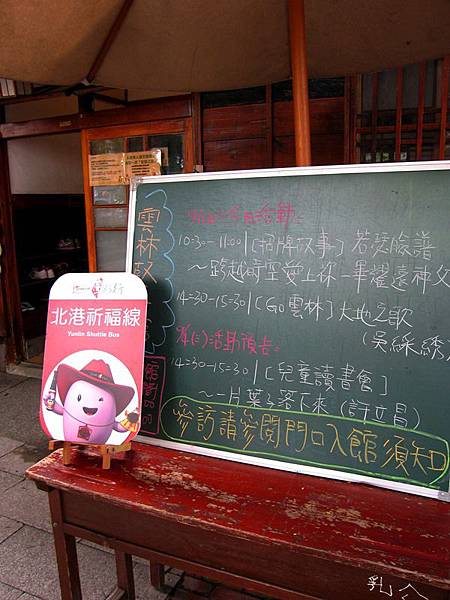 雲林故
今日活動:
10:30-11:00/[招牌故事]若瑟臉譜
～跨越時空愛上你-畢耀遠神父
14:30-15:30/[Go雲林]大地之歌
(吳綵綉)
活動預告:
14:30-15:30/[兒童讀書會]
～一片葉子落下來(許立昌)
參訪請參閱門口入館須知
好行
北港祈福線
Yunlin Shuttle Bus